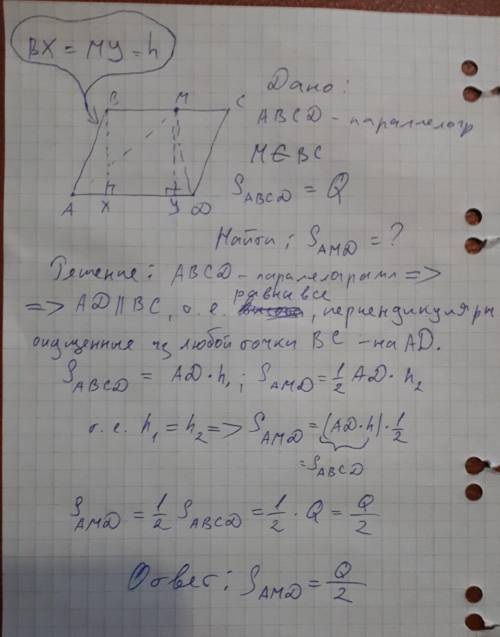 BX = MY = h
Дано:
B M C
ABCD - параллелогр
M ∈ BC
A X Y D
S_ABCD = Q
Найти: S_AMD = ?
Решение: ABCD - паралелограмм =>
равны все
=> AD || BC, т.е. , перпендикуляры
опущенные из любой точки BC - на AD.
S_ABCD = AD · h₁; S_AMD = 1/2 AD · h₂
т.е. h₁ = h₂ => S_AMD = (AD · h) · 1/2
= S_ABCD
S_AMD = 1/2 S_ABCD = 1/2 · Q = Q/2
Ответ: S_AMD = Q/2